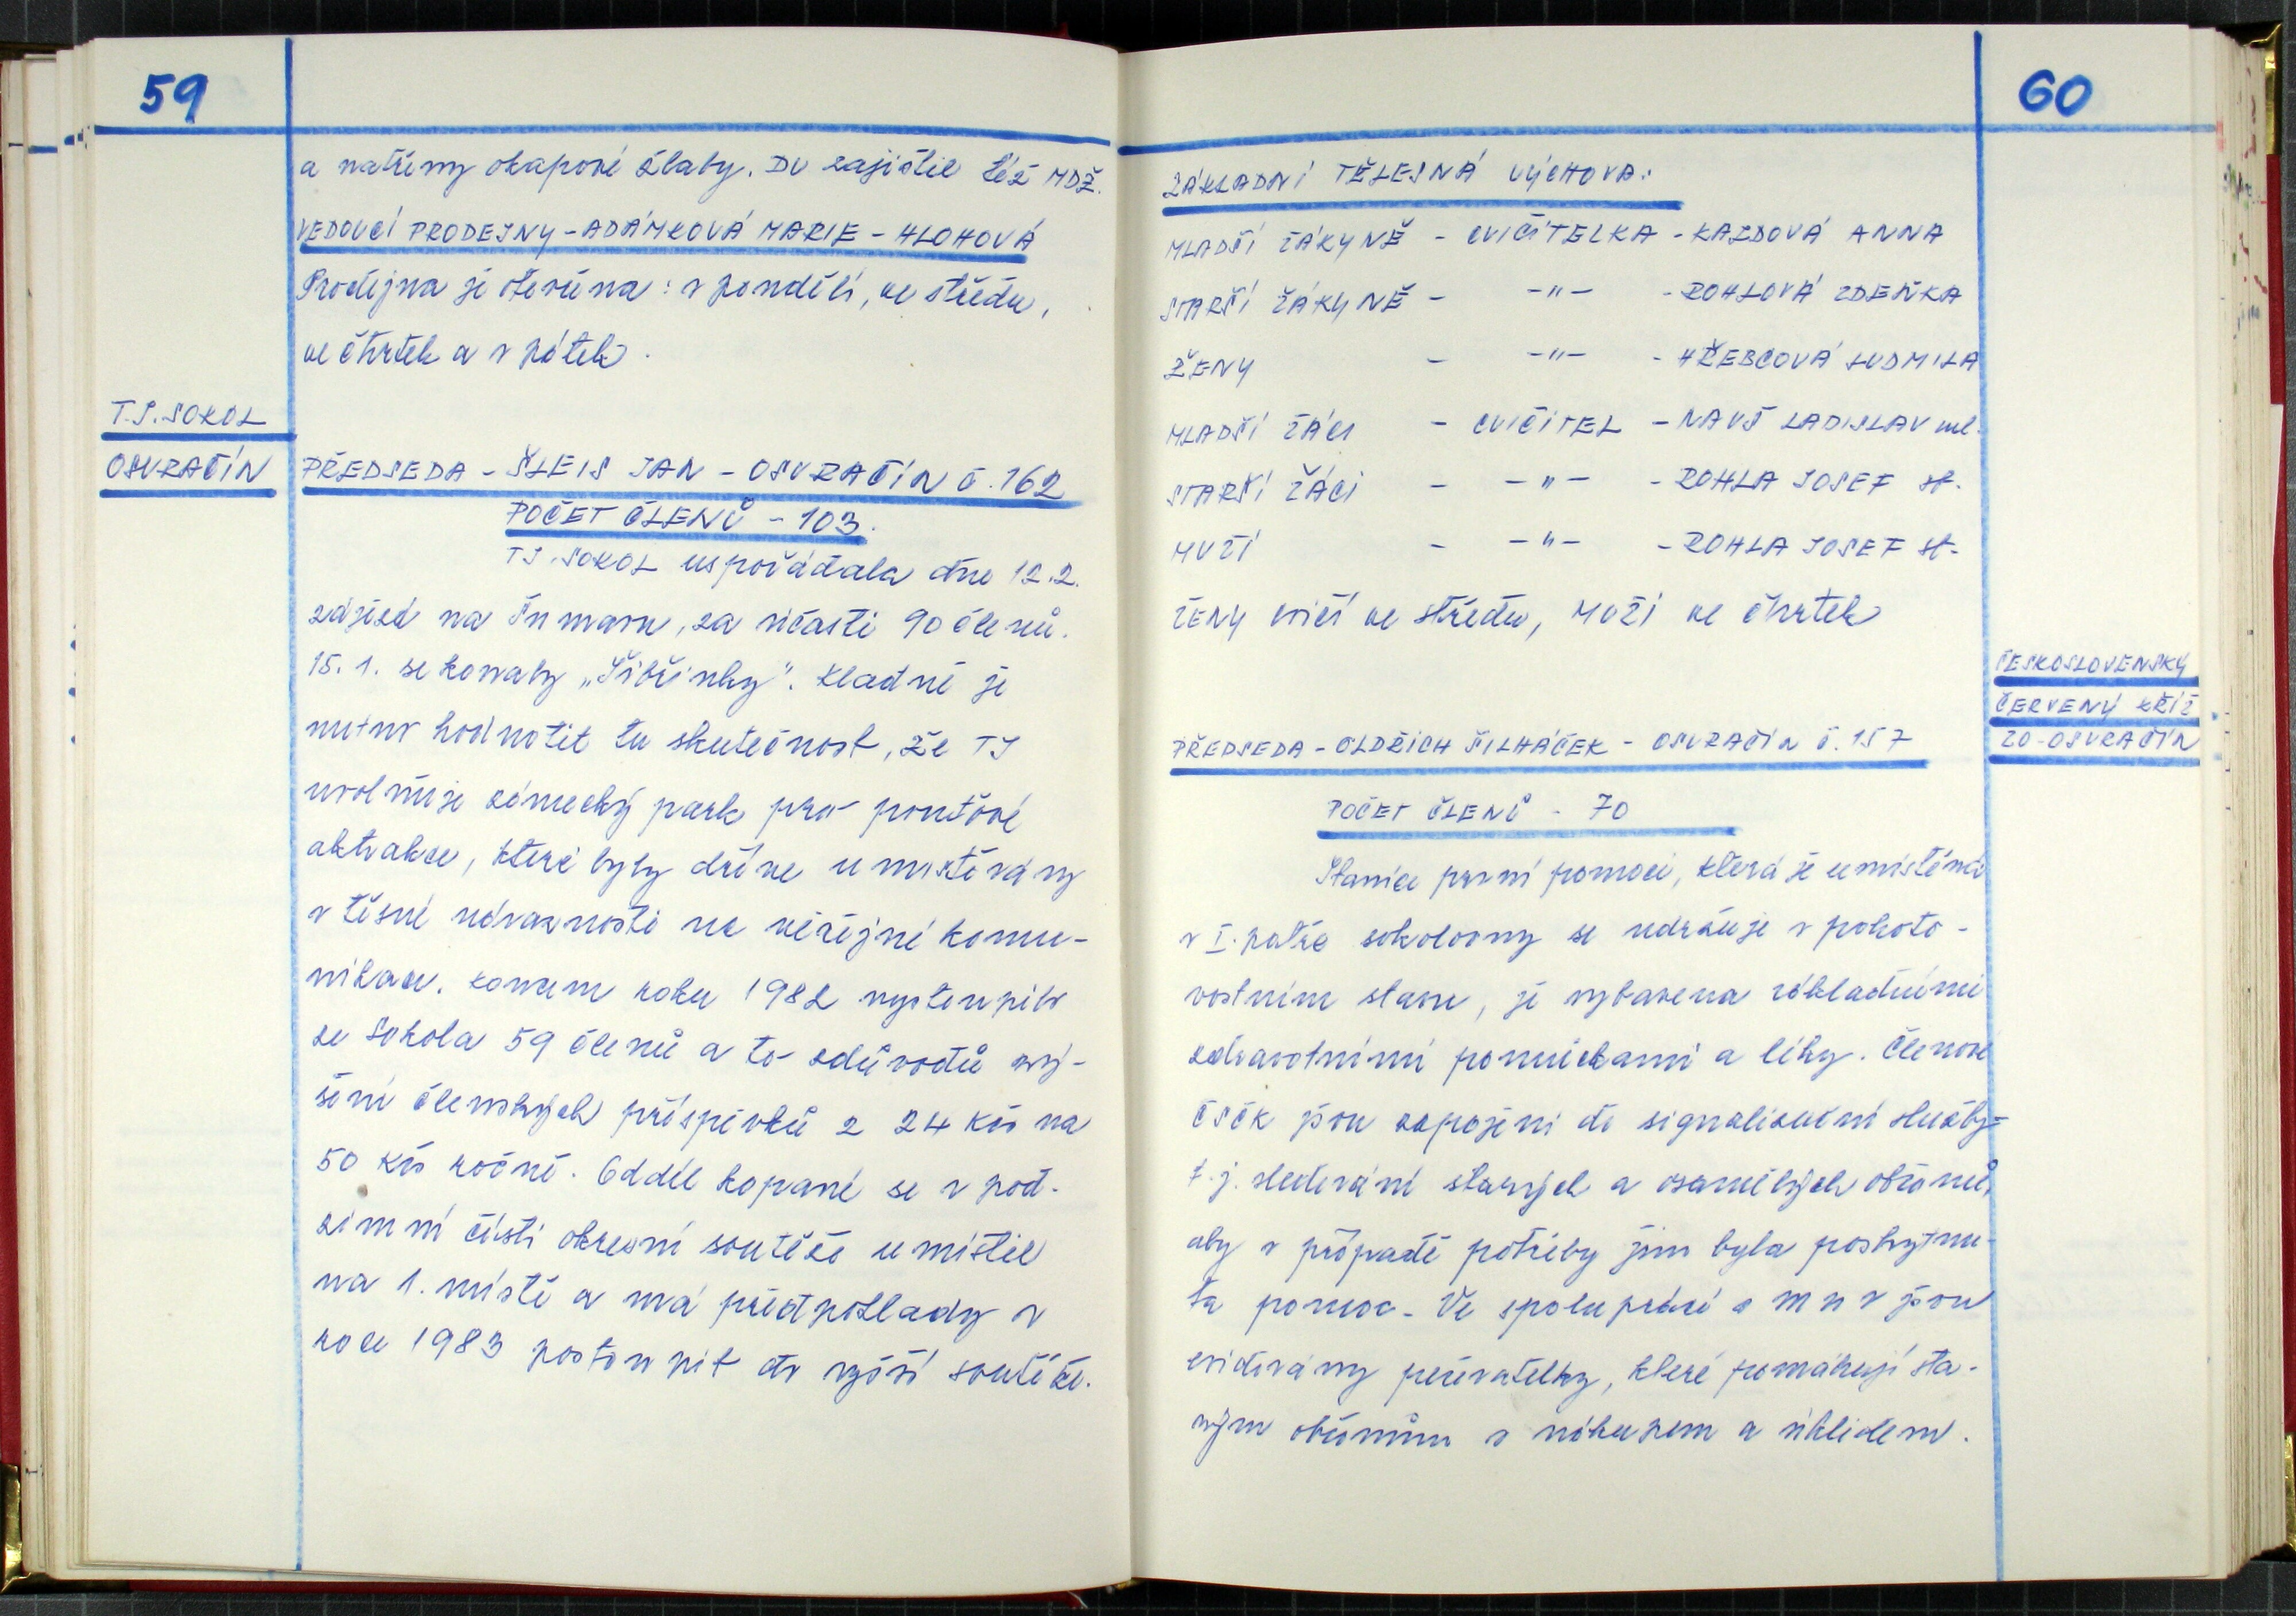 59
a natřeny okapové žlaby. DV zajistil též MDŽ.
VEDOUCÍ PRODEJNY - ADÁMKOVÁ MARIE - HLOHOVÁ
Prodejna je otevřena: v pondělí, ve středu,
ve čtvrtek a v pátek.
T.J. SOKOL
OSVRAČÍN
PŘEDSEDA - ŠLEIS JAN - OSVRAČÍN č. 162
POČET ČLENŮ - 103.
TJ. SOKOL uspořádala dne 12.2.
zájezd na Šumavu, za účasti 90 členů.
15. 1. se konaly „Šibřinky“. Kladně je
nutno hodnotit tu skutečnost, že TJ
uvolňuje zámecký park pro pouťové
aktrakce, které byly dříve umístěvány
v těsné návaznosti na veřejné komu-
nikace. Koncem roku 1982 vystoupilo
ze Sokola 59 členů a to zdůvodů zvý-
šení členských příspěvků z 24 Kčs na
50 Kčs ročně. Oddíl kopané se v pod-
zimní části okresní soutěže umístil
na 1. místě a má předpoklady v
roce 1983 postoupit do vyšší soutěže.
60
ZÁKLADNÍ TĚLESNÁ VÝCHOVA:
MLADŠÍ ŽÁKYNĚ - CVIČITELKA - KAZDOVÁ ANNA
STARŠÍ ŽÁKYNĚ - -"- - ROHLOVÁ ZDEŇKA
ŽENY - -"- - HŘEBCOVÁ LUDMILA
MLADŠÍ ŽÁCI - CVIČITEL - NAVŠ LADISLAV ml.
STARŠÍ ŽÁCI - -"- - ROHLA JOSEF st.
MUŽI - -"- - ROHLA JOSEF st.
ŽENY cvičí ve středu, MUŽI ve čtvrtek
ČESKOSLOVENSKÝ
ČERVENÝ KŘÍŽ
ZO - OSVRAČÍN
PŘEDSEDA - OLDŘICH ŠILHÁČEK - OSVRAČÍN č. 157
POČET ČLENŮ - 70
Stanice první pomoci, která je umístěná
v I. patře sokolovny se udržuje v pohoto-
vostním stavu, je vybavena základními
zdravotními pomůckami a léky. Členové
ČSČK jsou zapojeni do signalizační služby -
t.j. sledování starých a osamělých občanů,
aby v případě potřeby jim byla poskytnu-
ta pomoc. Ve spolupráci s MNV jsou
evidovány pečovatelky, které pomáhají sta-
rým občanům s nákupem a úklidem.